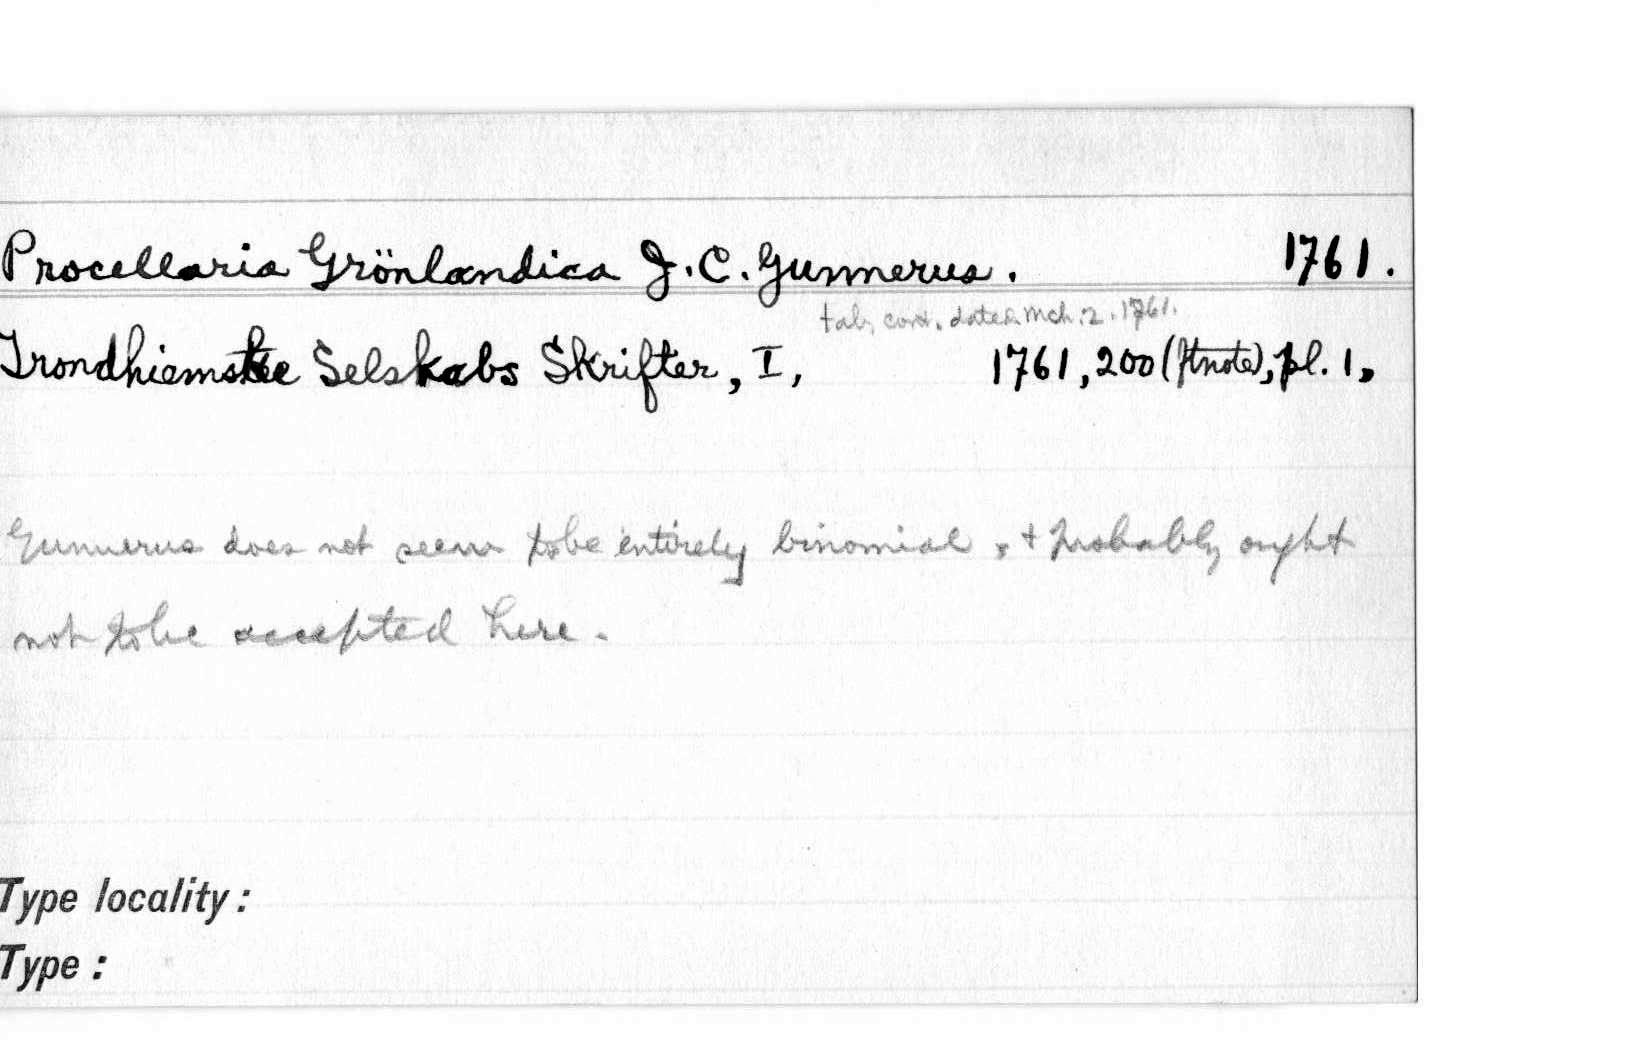 Procellaria Grönlandica J. C. Gunnerus. 1761.
tab, cont. dated Mch. 2. 1761.
Trondhiemske Selskabs Skrifter, I, 1761, 200 (ftnote), pl. 1,
Gunnerus does not seem to be entirely binomial, + probably ought
not to be accepted here.
Type locality:
Type: